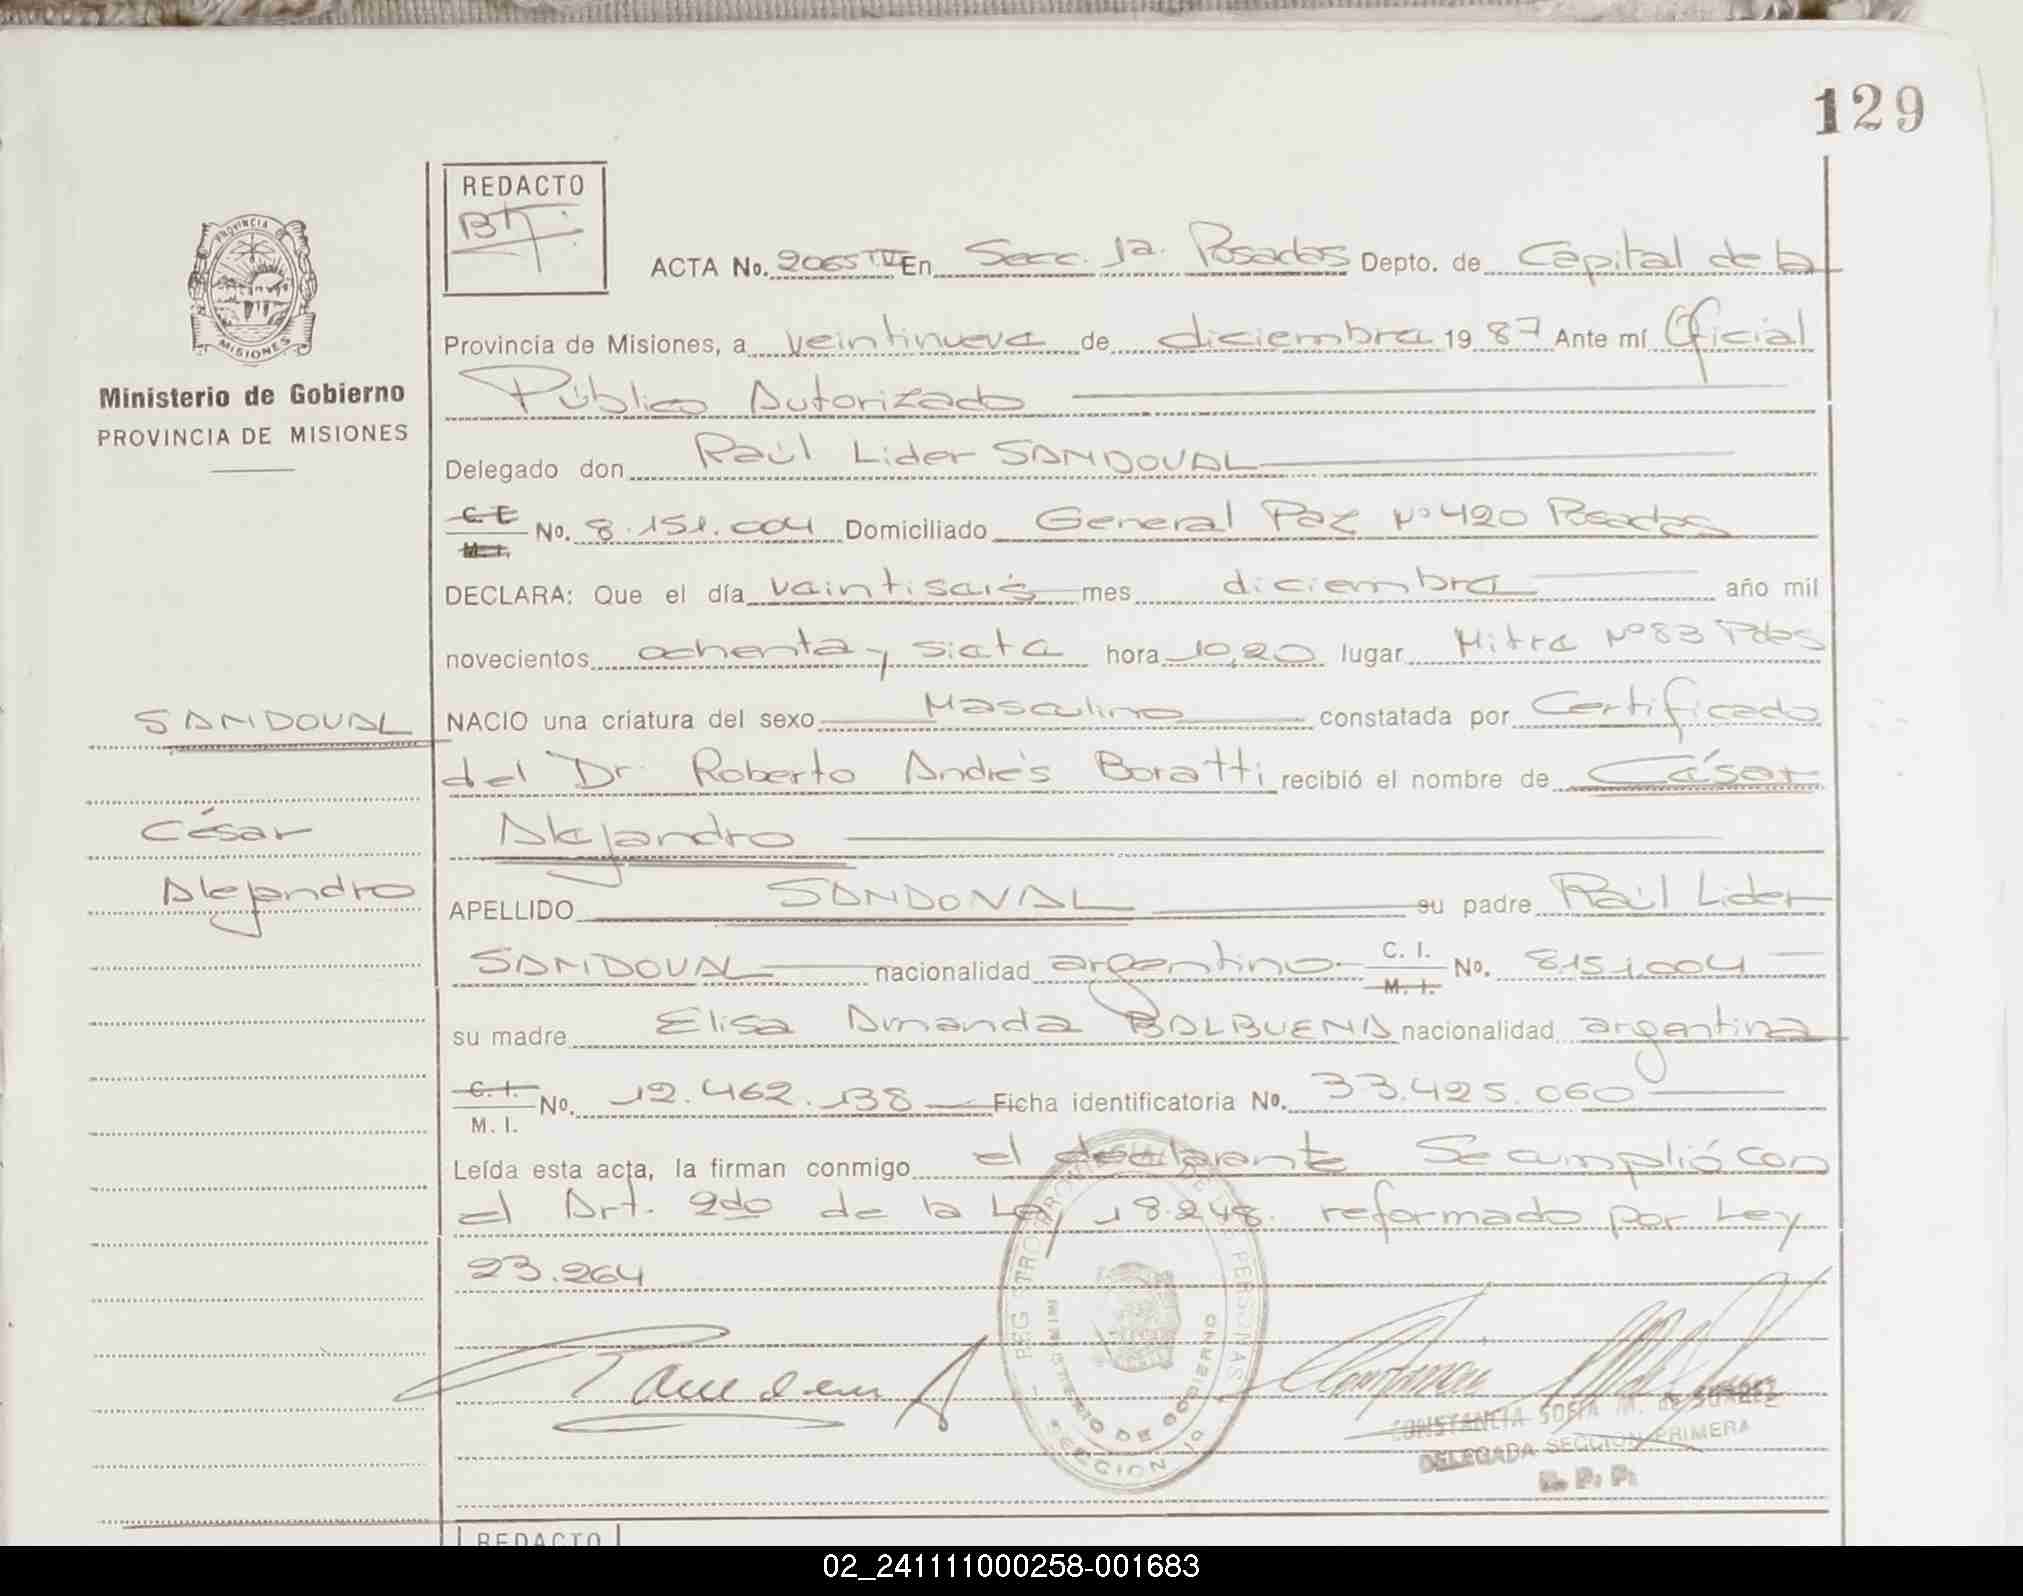 129
REDACTO
ACTA No. 2065 TIV En Secc. 1a. Posadas Depto. de Capital de la
PROVINCIA DE
MISIONES
Provincia de Misiones, a veintinueve de diciembre 19 87 Ante mí Oficial
Ministerio de Gobierno
PROVINCIA DE MISIONES
Público Autorizado
Delegado don Raúl Lider SANDOVAL
C. E
M. I. No. 8.151.004 Domiciliado General Paz Nº 420 Posadas
DECLARA: Que el día veintiseis mes diciembre año mil
novecientos ochenta y siete hora 10,20 lugar Mitre Nº 83 Pdas
SANDOVAL
NACIO una criatura del sexo Masculino constatada por Certificado
del Dr. Roberto Andrés Boratti recibió el nombre de César
César
Alejandro
Alejandro
APELLIDO SANDOVAL su padre Raúl Lider
SANDOVAL nacionalidad argentino C. I.
M. I. No. 8.151.004
su madre Elisa Amanda BALBUENA nacionalidad argentina
C. I.
M. I. No. 12.462.138 Ficha identificatoria No. 33.425.060
Leída esta acta, la firman conmigo el declarante Se cumplió con
el Art. 2do de la Ley 18.248. reformado por Ley
23.264
REGISTRO PROVINCIAL DE LAS PERSONAS
MINISTERIO DE GOBIERNO
SECCION 1a
CONSTANCIA SOFIA M. de SUAREZ
DELEGADA SECCION PRIMERA
R. P. P.
REDACTO
02_241111000258-001683